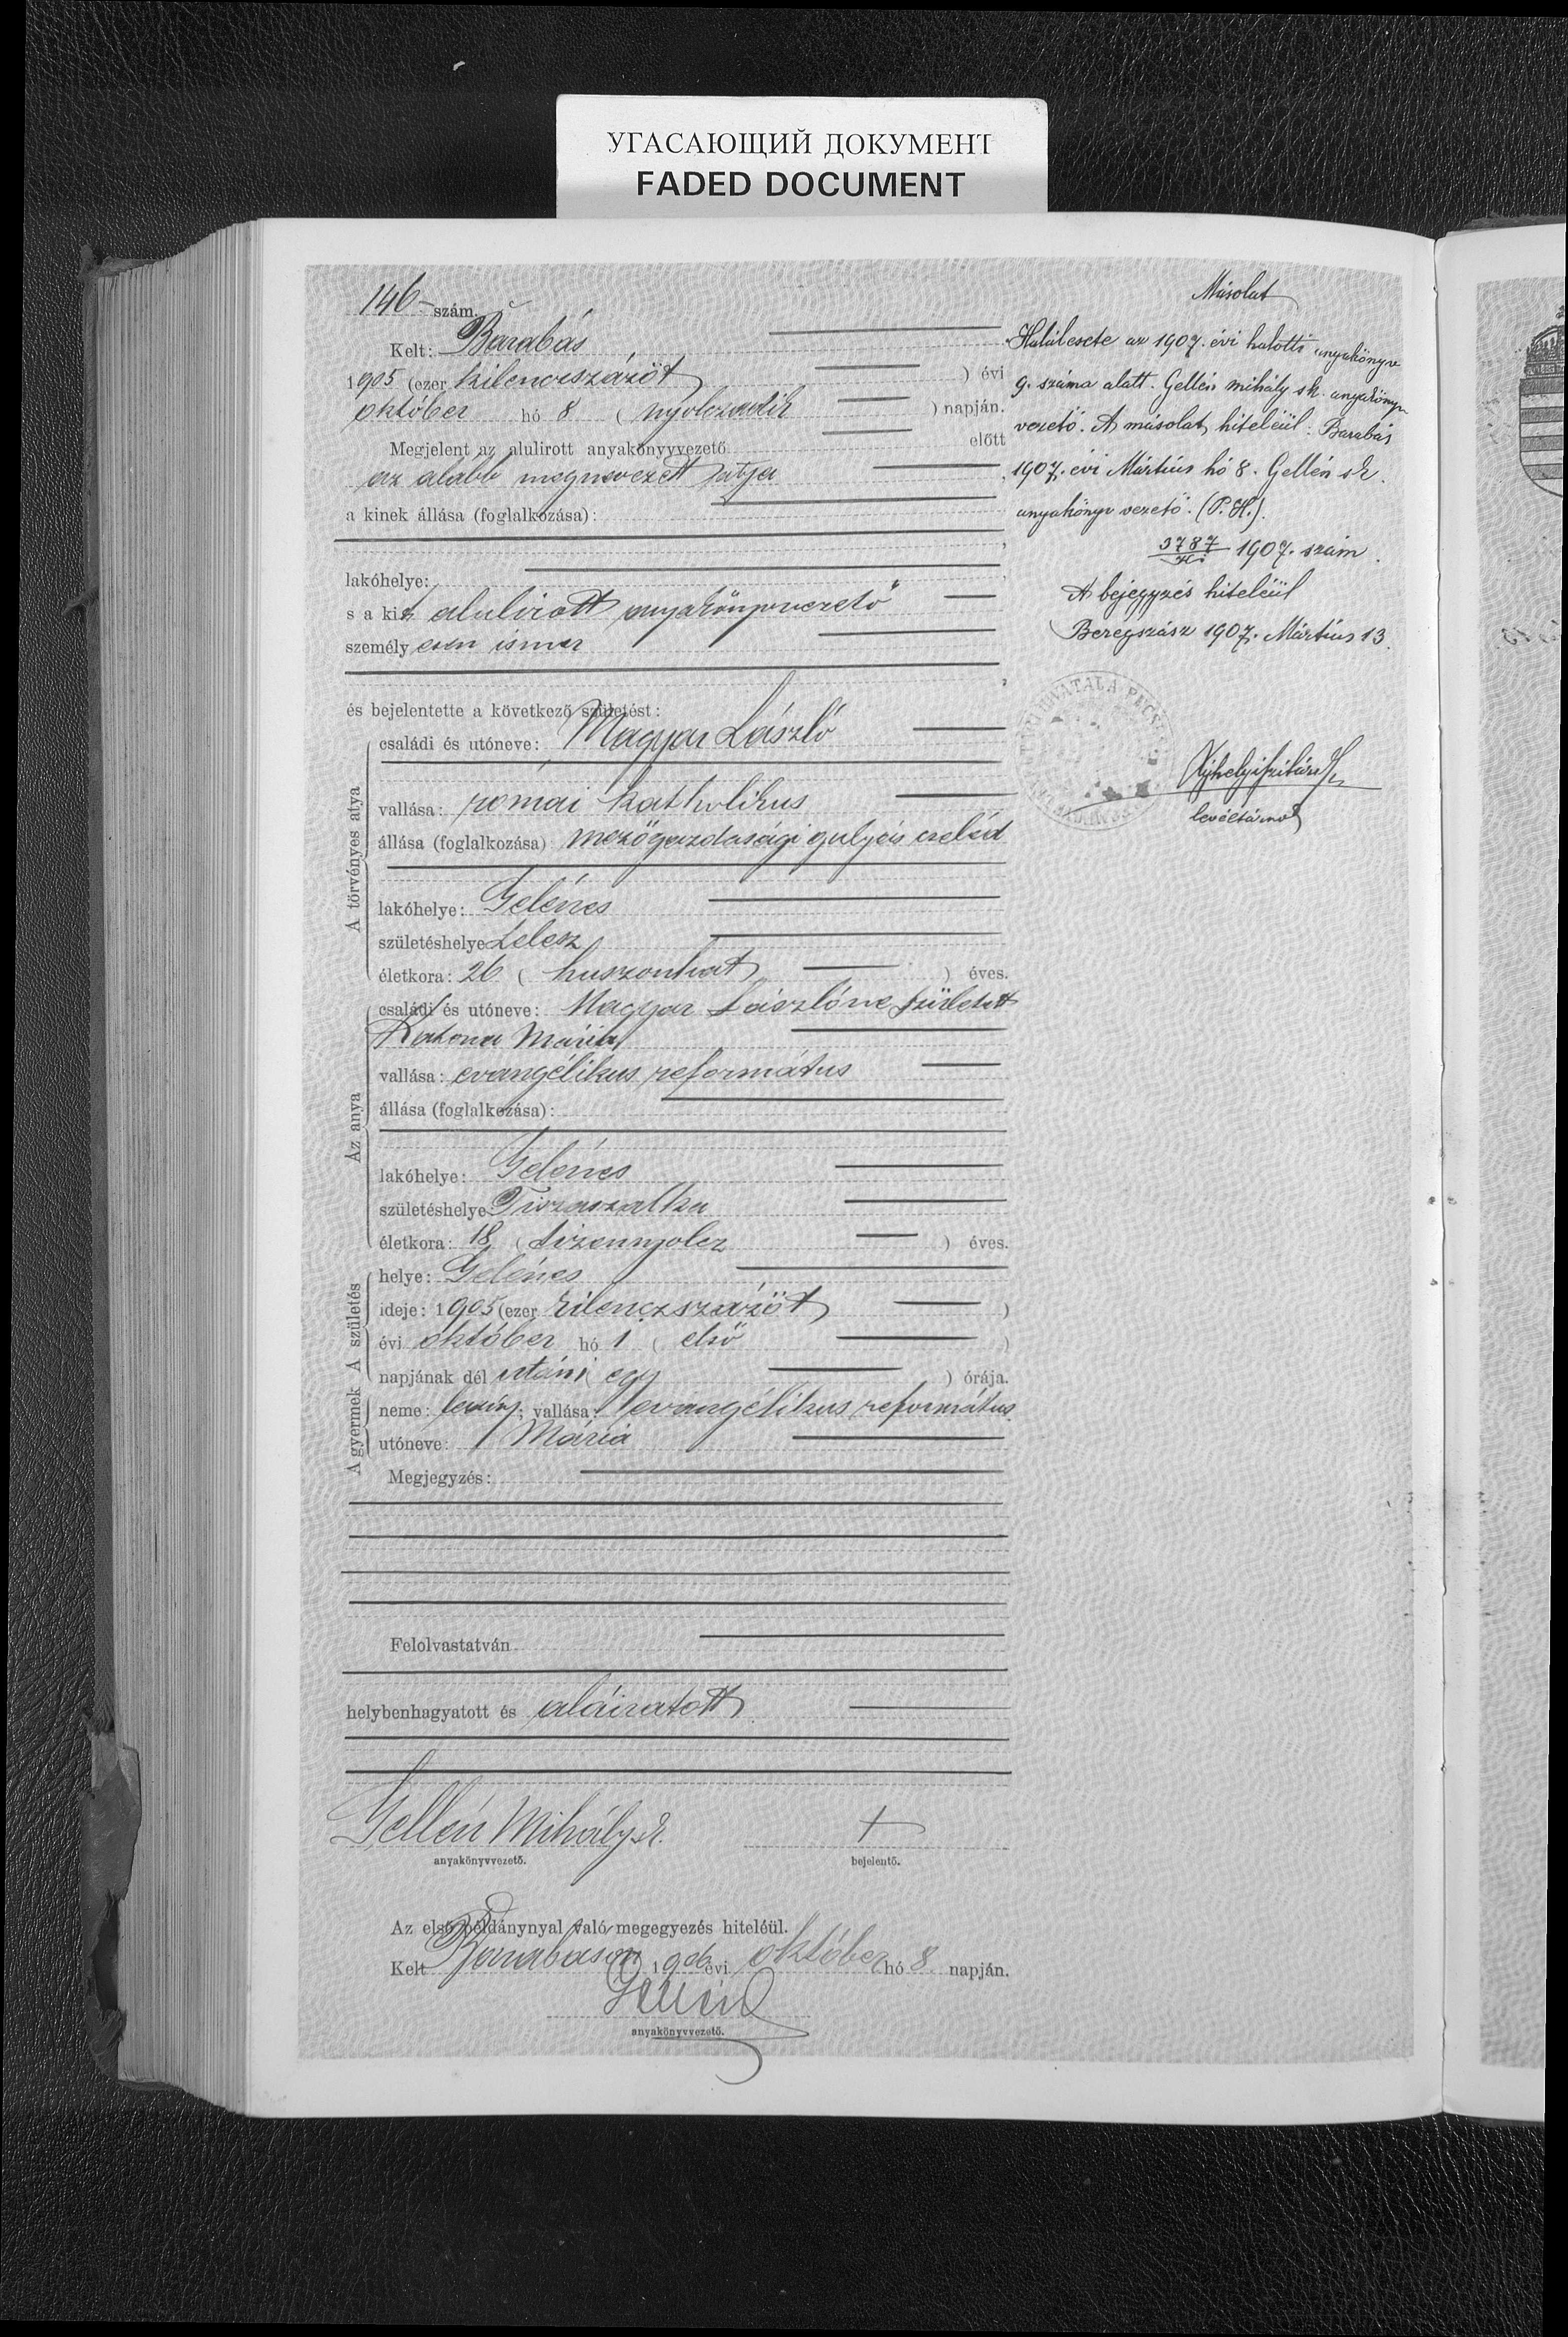 УГАСАЮЩИЙ ДОКУМЕНТ
FADED DOCUMENT
146 szám.
Kelt: Barabás
1905 (ezer kilenczszázöt ) évi
október hó 8 ( nyolczadik ) napján.
Megjelent az alulirott anyakönyvvezető előtt
az alább megnevezett atya
a kinek állása (foglalkozása):
lakóhelye:
s a kit alulirott anyakönyvvezető
személyesen ismer
és bejelentette a következő születést:
A törvényes atya
családi és utóneve: Magyar László
vallása: római katholikus
állása (foglalkozása): mezőgazdasági gulyás cseléd
lakóhelye: Gelénes
születéshelye Lelesz
életkora: 26 ( huszonhat ) éves.
Az anya
családi és utóneve: Magyar Lászlóné született
Katona Mária
vallása: evangélikus református
állása (foglalkozása):
lakóhelye: Gelénes
születéshelye Tiszaszalka
életkora: 18 ( tizennyolcz ) éves.
A születés
helye: Gelénes
ideje: 1905 (ezer kilenczszázöt )
évi október hó 1 ( első )
napjának dél utáni egy ) órája.
A gyermek
neme: leány; vallása: evangélikus református
utóneve: Mária
Megjegyzés:
Felolvastatván
helybenhagyatott és aláiratott
Gellén Mihály sk.
anyakönyvvezető.
+
bejelentő.
Az első példánynyal való megegyezés hiteléül.
Kelt Barabáson 1905 évi október hó 8 napján.
Gellén
anyakönyvvezető.
Másolat
Halálesete az 1907. évi halotti anyakönyv
9. száma alatt. Gellén Mihály sk. anyakönyv
vezető. A másolat hiteléül: Barabás
1907. évi Mártius hó 8. Gellén sk.
anyakönyv vezető. (P.H.).
3787 1907. szám.
A bejegyzés hiteléül
Beregszász 1907. Mártius 13.
levéltárnok